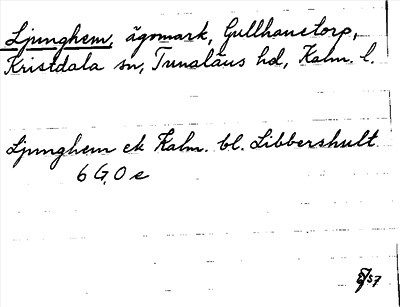 Ljunghem, ägomark, Gullhanetorp,
Kristdala sn, Tunaläns hd, Kalm. l.
Ljunghem ek Kalm. bl. Libbershult
6 G, 0 e